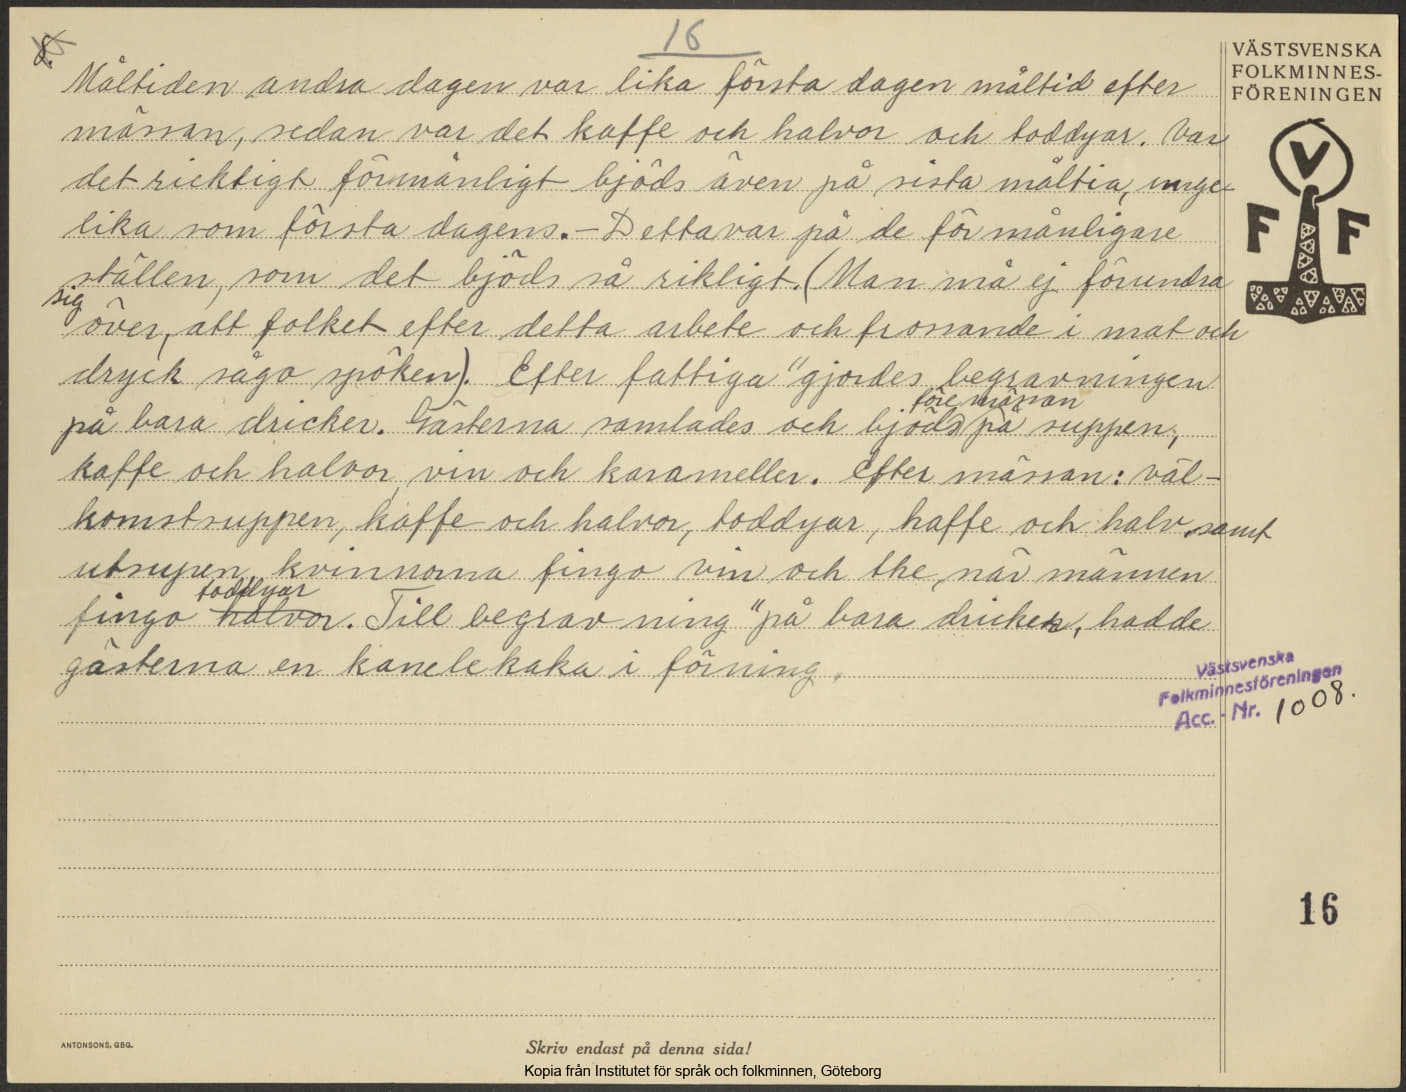 8.
16
Måltiden andra dagen var lika första dagen måltid efter
mässan, sedan var det kaffe och halvor och toddyar. Var
det ricktigt förmånligt bjöds även på sista måltia, unge
lika som första dagens. – Detta var på de förmånligare
ställen, som det bjöds så rikligt. (Man må ej förundra
sig över, att folket efter detta arbete och frossande i mat och
dryck sågo spöken). Efter fattiga "gjordes begravningen
före mässan
på bara dricker. Gästerna samlades och bjöds på suppen,
kaffe och halvor, vin och karameller. Efter mässan: väl-
komstsuppen, kaffe och halvor, toddyar, kaffe och halv. samt
utsupen, kvinnorna fingo vin och the, när männen
toddyar
fingo halvor. Till begravning "på bara dricker, hadde
gästerna en kanelekaka i förning.
VÄSTSVENSKA
FOLKMINNES-
FÖRENINGEN
V
F F
Västsvenska
Folkminnesföreningen
Acc. - Nr. 1008.
16
ANTONSONS, GBG.
Skriv endast på denna sida!
Kopia från Institutet för språk och folkminnen, Göteborg